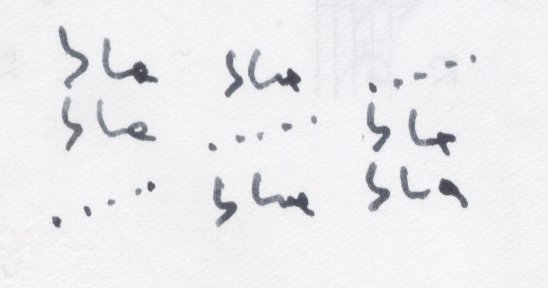 bla bla .....
bla ..... bla
..... bla bla